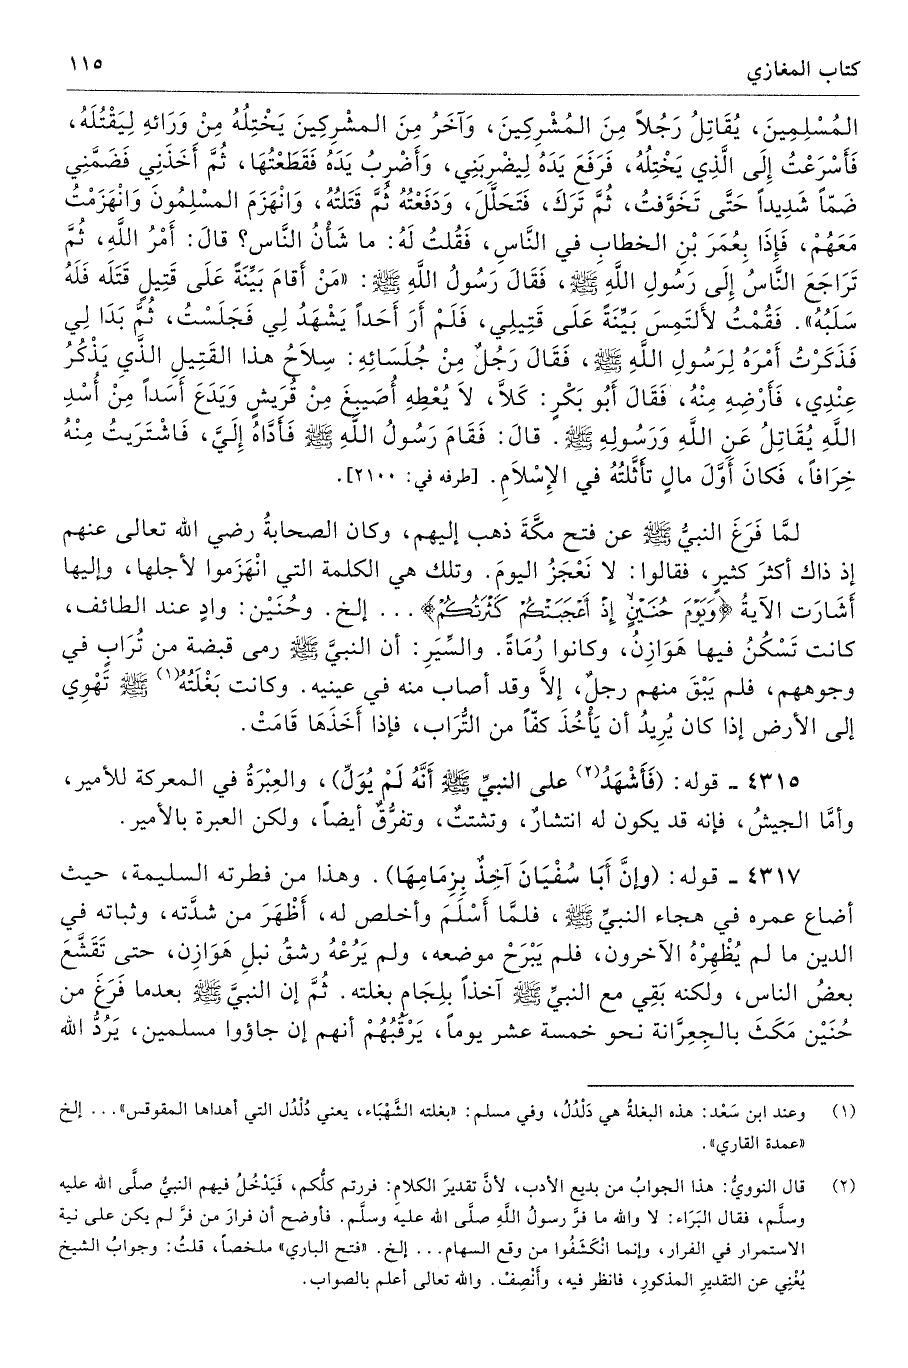 كتاب المغازي ١١٥
المُسْلِمِينَ، يُقَاتِلُ رَجُلاً مِنَ المُشْرِكِينَ، وَآخَرُ مِنَ المشْرِكِينَ يَخْتِلُهُ مِنْ وَرَائهِ لِيَقْتُلَهُ،
فَأَسْرَعْتُ إِلَى الَّذِي يَخْتِلُهُ، فَرَفَعَ يَدَهُ لِيضْرِبَنِي، وَأَضْرِبُ يَدَهُ فَقَطَعْتُهَا، ثُمَّ أَخَذَنِي فَضَمَّنِي
ضَمّاً شَدِيداً حَتَّى تَخَوَّفتُ، ثُمَّ تَرَكَ، فَتَحَلَّلَ، وَدَفَعْتُهُ ثُمَّ قَتَلتُهُ، وَانْهَزَمَ المسْلِمُونَ وَانْهَزَمْتُ
مَعَهُمْ، فَإِذَا بِعُمَرَ بْنِ الخطابِ في النَّاسِ، فَقُلتُ لَهُ: ما شَأْنُ النَّاس؟ قالَ: أَمْرُ اللَّهِ، ثُمَّ
تَرَاجَعَ النَّاسُ إِلَى رَسُولِ اللَّهِ ﷺ، فَقَالَ رَسُولُ اللَّهِ ﷺ: «مَنْ أَقامَ بَيِّنَةً عَلَى قَتِيلٍ قَتَلَه فَلَهُ
سَلَبُهُ». فَقُمْتُ لأَلتَمِسَ بَيِّنَةً عَلَى قَتِيلِي، فَلَمْ أَرَ أَحَداً يَشْهَدُ لِي فَجَلَسْتُ، ثُمَّ بَدَا لِي
فَذَكَرْتُ أَمْرَهُ لِرَسُولِ اللَّهِ ﷺ، فَقَالَ رَجُلٌ مِنْ جُلَسَائِهِ: سِلاَحُ هذا القَتِيلِ الَّذي يَذْكُرُ
عِنْدِي، فَأَرْضِهِ مِنْهُ، فَقَالَ أَبُو بَكْرٍ: كَلاَّ، لاَ يُعْطِهِ أُصَيبِغَ مِنْ قُرَيشٍ وَيَدَعَ أَسَداً مِنْ أُسْدِ
اللَّهِ يُقَاتِلُ عَنِ اللَّهِ وَرَسُولِهِ ﷺ. قالَ: فَقَامَ رَسُولُ اللَّهِ ﷺ فَأَدَّاهُ إِلَيَّ، فَاشْتَرَيتُ مِنْهُ
خِرَافاً، فَكانَ أَوَّلَ مالٍ تأَثَّلتُهُ في الإِسْلاَمِ. [طرفه في: ٢١٠٠].
لمَّا فَرَغَ النبيُّ ﷺ عن فتح مكَّةَ ذهب إليهم، وكان الصحابةُ رضي الله تعالى عنهم
إذ ذاك أكثرَ كثيرٍ، فقالوا: لا نَعْجَزُ اليومَ. وتلك هي الكلمة التي انْهَزَموا لأجلها، وإليها
أشارَت الآيةُ ﴿وَيَوْمَ حُنَيْنٍ إِذْ أَعْجَبَتْكُمْ كَثْرَتُكُمْ﴾... إلخ. وحُنَيْن: وادٍ عند الطائف،
كانت تَسْكُنُ فيها هَوَازِنُ، وكانوا رُمَاةً. والسِّيَرِ: أن النبيَّ ﷺ رمى قبضة من تُرَابٍ في
وجوههم، فلم يَبْقَ منهم رجلٌ، إلاَّ وقد أصاب منه في عينيه. وكانت بَغْلَتُهُ(١) ﷺ تَهْوِي
إلى الأرض إذا كان يُرِيدُ أن يَأْخُذَ كفّاً من التُّرَاب، فإذا أَخَذَهَا قَامَتْ.
٤٣١٥ ـ قوله: (فَأَشْهَدُ(٢) على النبيِّ ﷺ أَنَّهُ لَمْ يُوَلِّ)، والعِبْرَةُ في المعركة للأمير،
وأمَّا الجيشُ، فإنه قد يكون له انتشارٌ، وتشتتٌ، وتفرُّقٌ أيضاً، ولكن العبرة بالأمير.
٤٣١٧ ـ قوله: (وإنَّ أَبَا سُفْيَانَ آخِذٌ بِزِمَامِهَا). وهذا من فطرته السليمة، حيث
أضاع عمره في هجاء النبيِّ ﷺ، فلمَّا أَسْلَمَ وأخلص له، أَظْهَرَ من شدَّته، وثباته في
الدين ما لم يُظْهِرْهُ الآخرون، فلم يَبْرَحْ موضعه، ولم يَرُعْهُ رشقُ نبلِ هَوَازِن، حتى تَقَشَّعَ
بعضُ الناس، ولكنه بَقِي مع النبيِّ ﷺ آخذاً بلِجَامِ بغلته. ثُمَّ إن النبيَّ ﷺ بعدما فَرَغَ من
حُنَيْن مَكَثَ بالجِعِرَّانة نحو خمسة عشر يوماً، يَرْقُبُهُمْ أنهم إن جاؤوا مسلمين، يَرُدُّ الله
(١) وعند ابن سَعْد: هذه البغلةُ هي دَلْدُلُ، وفي مسلم: «بغلته الشَّهْبَاء، يعني دُلْدُل التي أهداها المقوقس»... إلخ
«عمدة القاري».
(٢) قال النوويُّ: هذا الجوابُ من بديع الأدب، لأنَّ تقديرَ الكلامِ: فررتم كلُّكم، فَيَدْخُلُ فيهم النبيُّ صلَّى الله عليه
وسلَّم، فقال البَرَاء: لا والله ما فرَّ رسولُ اللَّهِ صلَّى الله عليه وسلَّم. فأوضح أن فرارَ من فرَّ لم يكن على نية
الاستمرار في الفرار، وإنما انْكَشَفُوا من وقع السهام... إلخ. «فتح الباري» ملخصاً، قلتُ: وجوابُ الشيخ
يُغْنِي عن التقديرِ المذكورِ، فانظر فيه، وأَنْصِفْ. والله تعالى أعلم بالصواب.